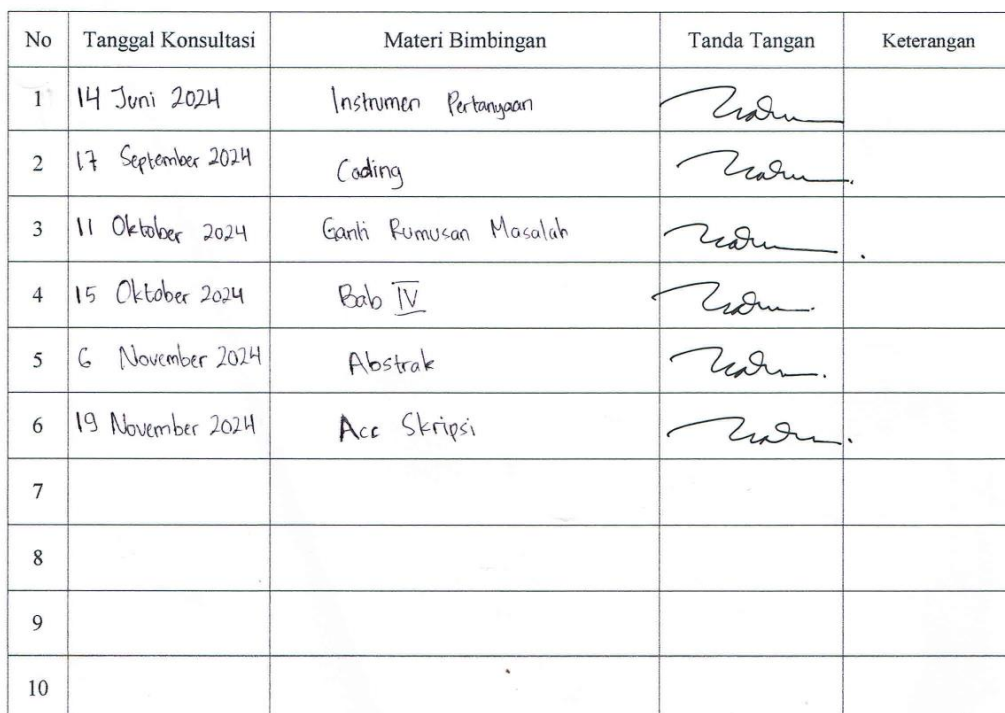 No Tanggal Konsultasi Materi Bimbingan Tanda Tangan Keterangan
1 14 Juni 2024 Instrumen Pertanyaan
2 17 September 2024 Coding
3 11 Oktober 2024 Ganti Rumusan Masalah
4 15 Oktober 2024 Bab IV
5 6 November 2024 Abstrak
6 19 November 2024 Acc Skripsi
7
8
9
10